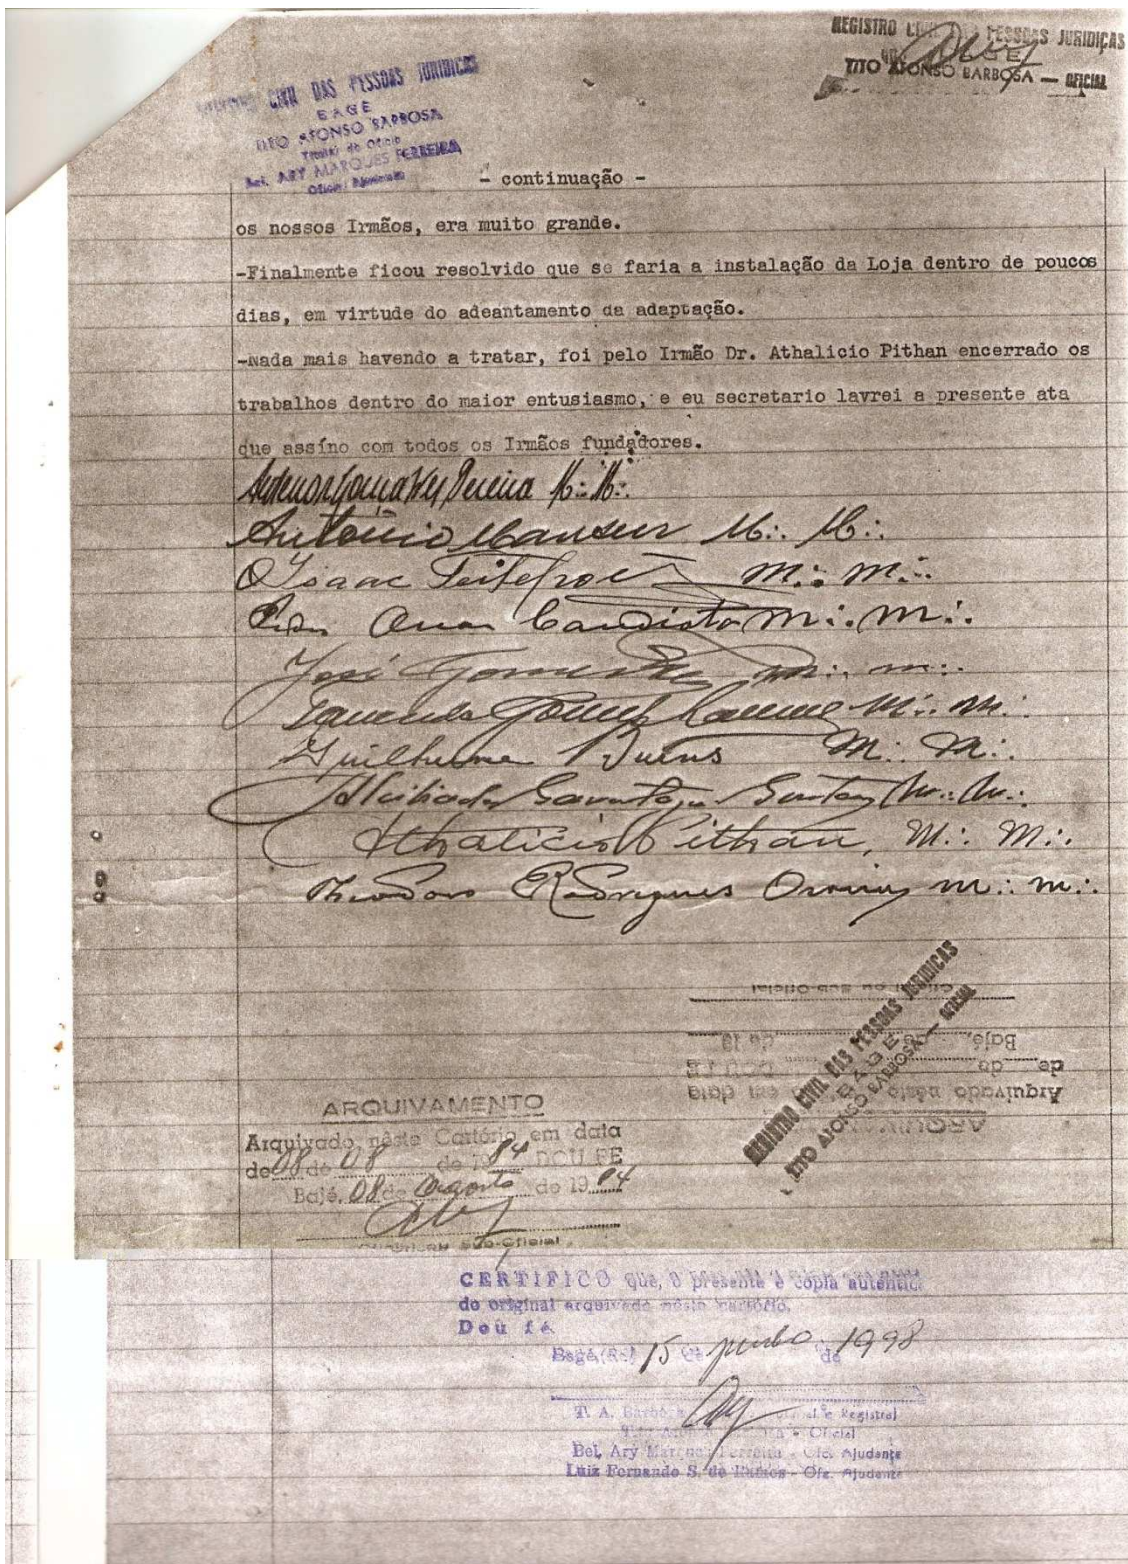 REGISTRO CIVIL DAS PESSOAS JURIDICAS
BAGÉ
TITO AFONSO BARBOSA — OFICIAL
CIVIL DAS PESSOAS JURIDICAS
BAGE
TITO AFONSO BARBOSA
Titular do Oficio
Bel. ARY MARQUES FERREIRA
Oficial Ajudante
- continuação -
os nossos Irmãos, era muito grande.
-Finalmente ficou resolvido que se faria a instalação da Loja dentro de poucos
dias, em virtude do adeantamento da adaptação.
-Nada mais havendo a tratar, foi pelo Irmão Dr. Athalicio Pithan encerrado os
trabalhos dentro do maior entusiasmo, e eu secretario lavrei a presente ata
que assíno com todos os Irmãos fundadores.
Pereira M∴ M∴
Antonio Mansur M∴ M∴
Isaac M∴ M∴
Candiota M∴ M∴
José M∴ M∴
Gomes M∴ M∴
Guilherme M∴ M∴
M∴ M∴
Athalicio Pithan, M∴ M∴
Theodoro Rodrigues M∴ M∴
Oficial ou Sub-Oficial
Bajé, de de 19
de do DOU FE
Arquivado nêste em data
REGISTRO CIVIL DAS PESSOAS JURIDICAS
BAGÉ
TITO AFONSO BARBOSA — OFICIAL
ARQUIVAMENTO
Arquivado nêste Cartório em data
de 08 de 08 de 1984 DOU FE
Bajé, 08 de Agosto de 1984
Sub-Oficial
CERTIFICO que, o presente é cópia autêntica
do original arquivado neste cartório.
Dou fé
Bagé, 15 de junho de 1998
T. A. Barbosa Registral
Oficial
Bel. Ary Marques Ferreira - Ofc. Ajudante
Luiz Fernando S. de - Ofc. Ajudante